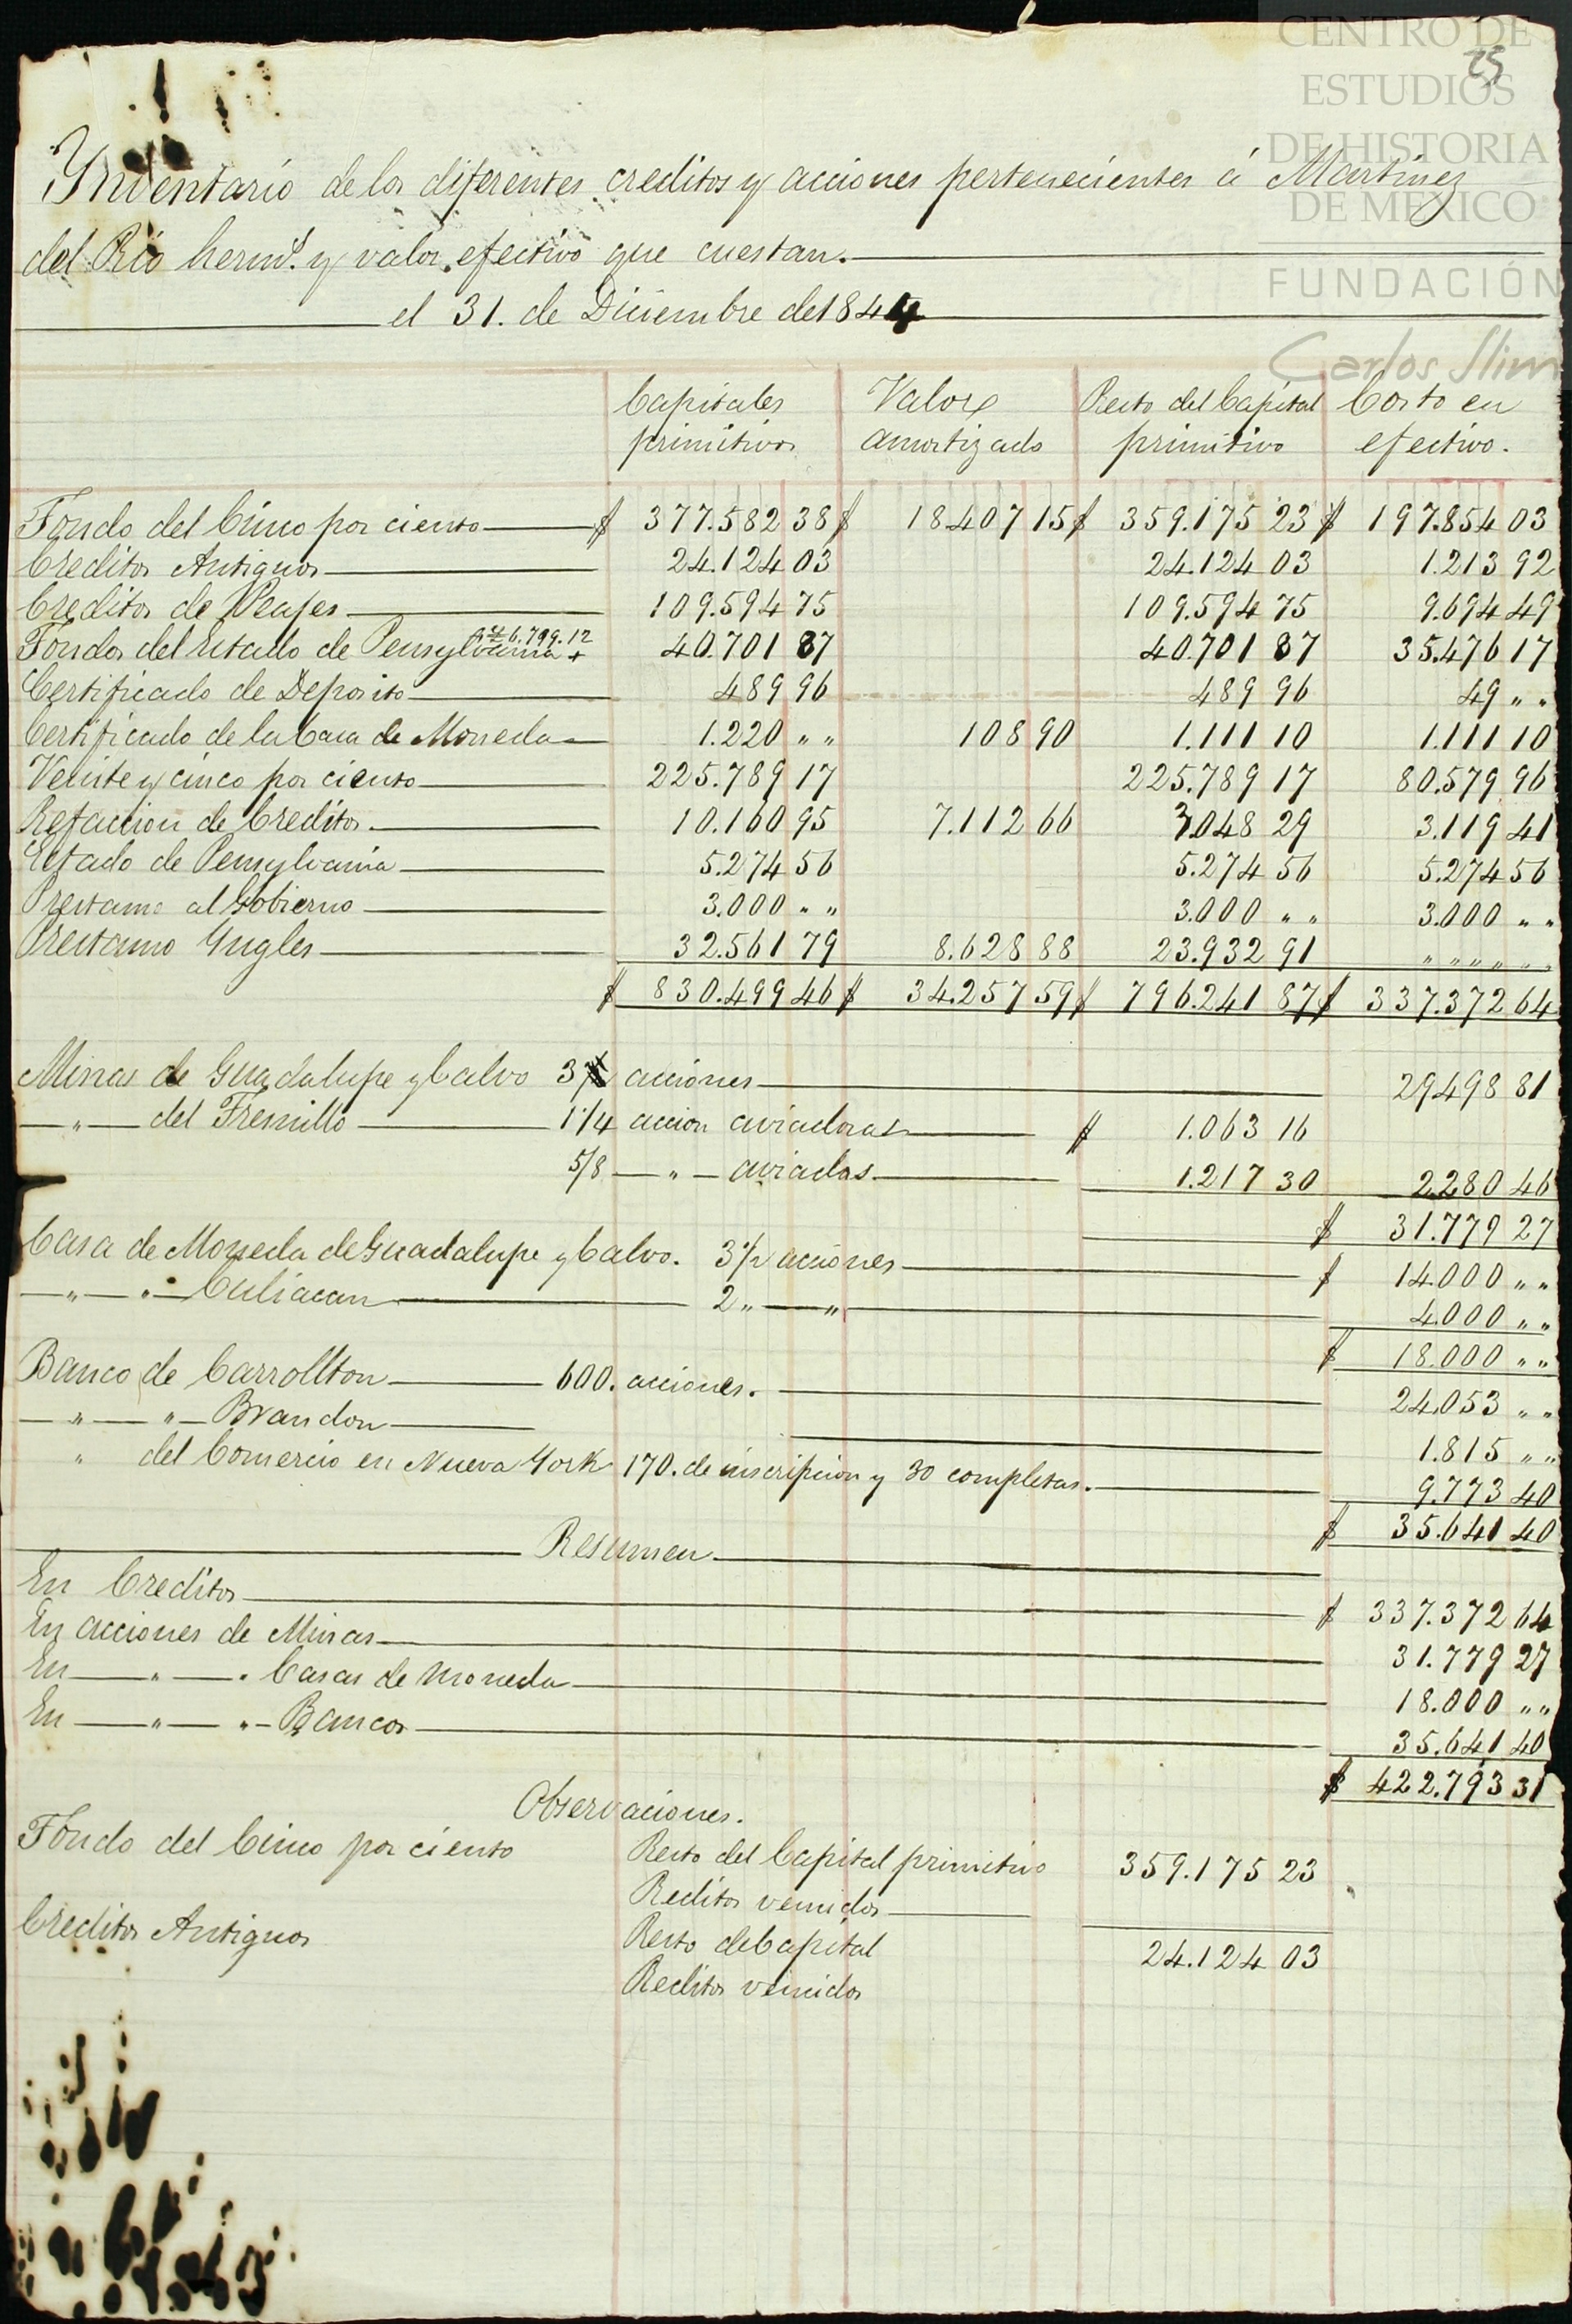 CENTRO DE
ESTUDIOS
DE HISTORIA
DE MEXICO
FUNDACIÓN
Carlos Slim
25
Ynventario de los diferentes creditos y acciones pertenecientes á Martinez
del Rio herms. y valor efectivo que cuestan.
el 31. de Diciembre de 1844
Capitales primitivos Valor amortizado Resto del Capital primitivo Costo en efectivo.
Fondo del Cinco por ciento $ 377.582 38 $ 18407 15 $ 359.175 23 $ 197.854 03
Creditos Antiguos 24.124 03 24.124 03 1.213 92
Creditos de Peajes 109.594 75 109.594 75 9.694 49
Fondos del Estado de Pensylvania 6.799.12 + 40.701 87 40.701 87 35.476 17
Certificado de Deposito 489 96 489 96 49 " "
Certificado de la Casa de Moneda 1.220 " " 108 90 1.111 10 1.111 10
Veinte y cinco por ciento 225.789 17 225.789 17 80.579 96
Refaccion de Creditos 10.160 95 7.112 66 3.048 29 3.119 41
Estado de Pensylvania 5.274 56 5.274 56 5.274 56
Prestamo al Gobierno 3.000 " " 3.000 " " 3.000 " "
Prestamo Yngles 32.561 79 8.628 88 23.932 91 " " " " " "
$ 830.499 46 $ 34.257 59 $ 796.241 87 $ 337.372 64
Minas de Guadalupe y Calvo acciones 29498 81
" del Fresnillo 1 1/4 accion aviadoras $ 1.063 16
5/8 " aviadas 1.217 30 2.280 46
$ 31.779 27
Casa de Moneda de Guadalupe y Calvo. 3 1/2 acciones $ 14.000 " "
" " Culiacan 2 " " 4.000 " "
$ 18.000 " "
Banco de Carrollton 600. acciones. 24.053 " "
" " Brandon 1.815 " "
" del Comercio en Nueva York 170. de inscripcion y 30 completas. 9.773 40
$ 35.641 40
Resumen
En Creditos $ 337.372 64
En acciones de Minas 31.779 27
En " " Casas de Moneda 18.000 " "
En " " Bancos 35.641 40
$ 422.793 31
Observaciones.
Fondo del Cinco por ciento Resto del Capital primitivo 359.175 23
Reditos vencidos
Creditos Antiguos Resto de Capital 24.124 03
Reditos vencidos